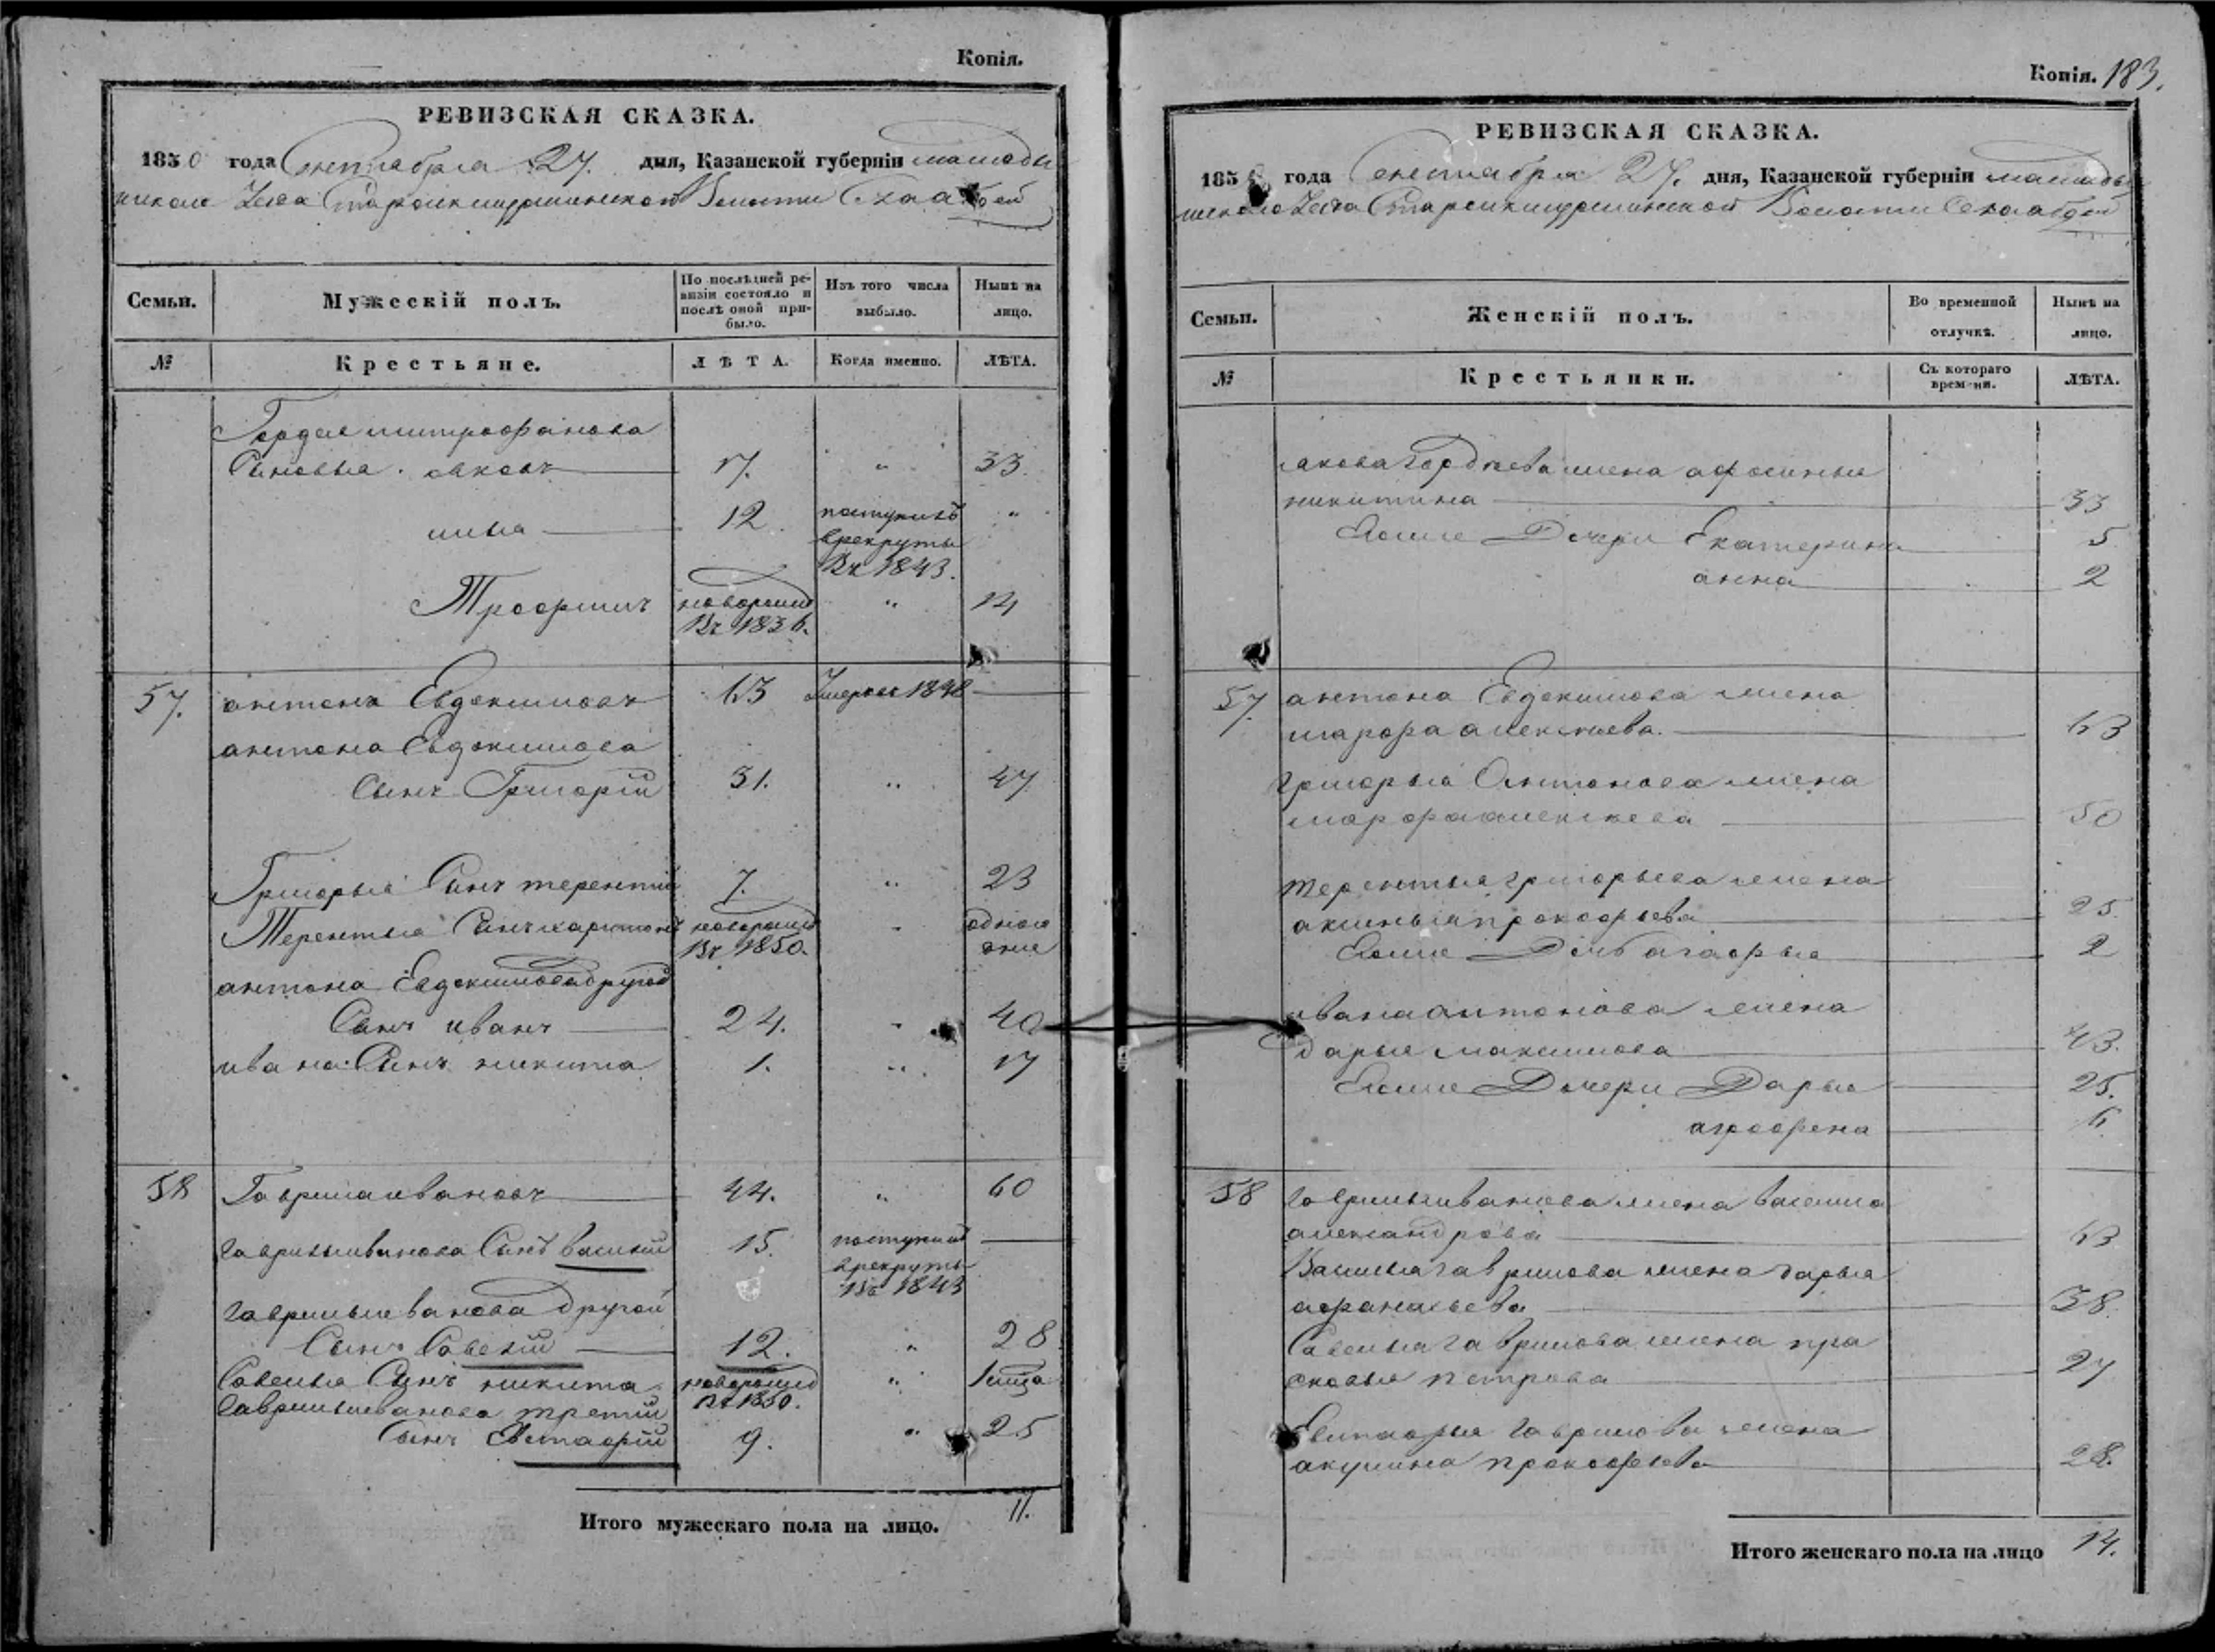 Копія.
РЕВИЗСКАЯ СКАЗКА.
1850 года Сентября 27. дня, Казанской губерніи мамады
шскаго уезда Старой Волости
Семьи.
Мужескій полъ.
По послѣдней ре-
визіи состояло и
послѣ оной при-
было.
Изъ того числа
выбыло.
Нынѣ на
лицо.
№
Крестьяне.
ЛѢТА.
Когда именно.
ЛѢТА.
Гордея митрофанова
Сыновья. яковъ 17. " 33.
илья 12 поступилъ "
врекруты
Въ 1843.
Трофимъ новорожд " 14
Въ 1836.
57. антонъ Евдокимовъ 63 Умеръ въ 1848
антона Евдокимова
Сынъ Григорій 31. " 47
Григорья Сынъ терентій 7. " 23
Терентья Сынъ харитонъ новорожд " одного
Въ 1850. дня
антона Евдокимова другой
Сынъ иванъ 24. " 40
ивана Сынъ никита 1. " 17
58 Гаврила ивановъ 44. " 60
гаврилы иванова Сынъ василий 15. поступилъ
врекруты
Въ 1843
гаврилы иванова другой
Сынъ Савелій 12. " 28
Савелья Сынъ никита новорожд "
Въ 1850.
Гаврилы иванова третій
Сынъ Евстафій 9. " 25
Итого мужескаго пола на лицо. 11.
Копія. 183.
РЕВИЗСКАЯ СКАЗКА.
185 года Сентября 27. дня, Казанской губерніи мамады
шскаго уезда Старой Волости
Семьи.
Женскій полъ.
Во временной
отлучкѣ.
Нынѣ на
лицо.
№
Крестьянки.
Съ котораго
времени.
ЛѢТА.
якова Гордѣева жена афимья
никитина 33
Ихже Дочери Екатерина 5
анна 2
57. антона Евдокимова жена
марфа алексѣева. 63
григорья Антонова жена
марфа алексѣева 50
терентья григорьева жена
аксинья прокофьева 25.
Ихже Дочь агафья 2
ивана антонова жена
дарья максимова 43.
Ихже Дочери Дарья 25.
аграфена 6
58 гаврилы иванова жена васелиса
александрова 63
Василья гаврилова жена дарья
афанасьева 38.
Савелья гаврилова жена пра
сковья петрова 27
Евстафья гаврилова жена
акулина прокофьева 28.
Итого женскаго пола на лицо 14.